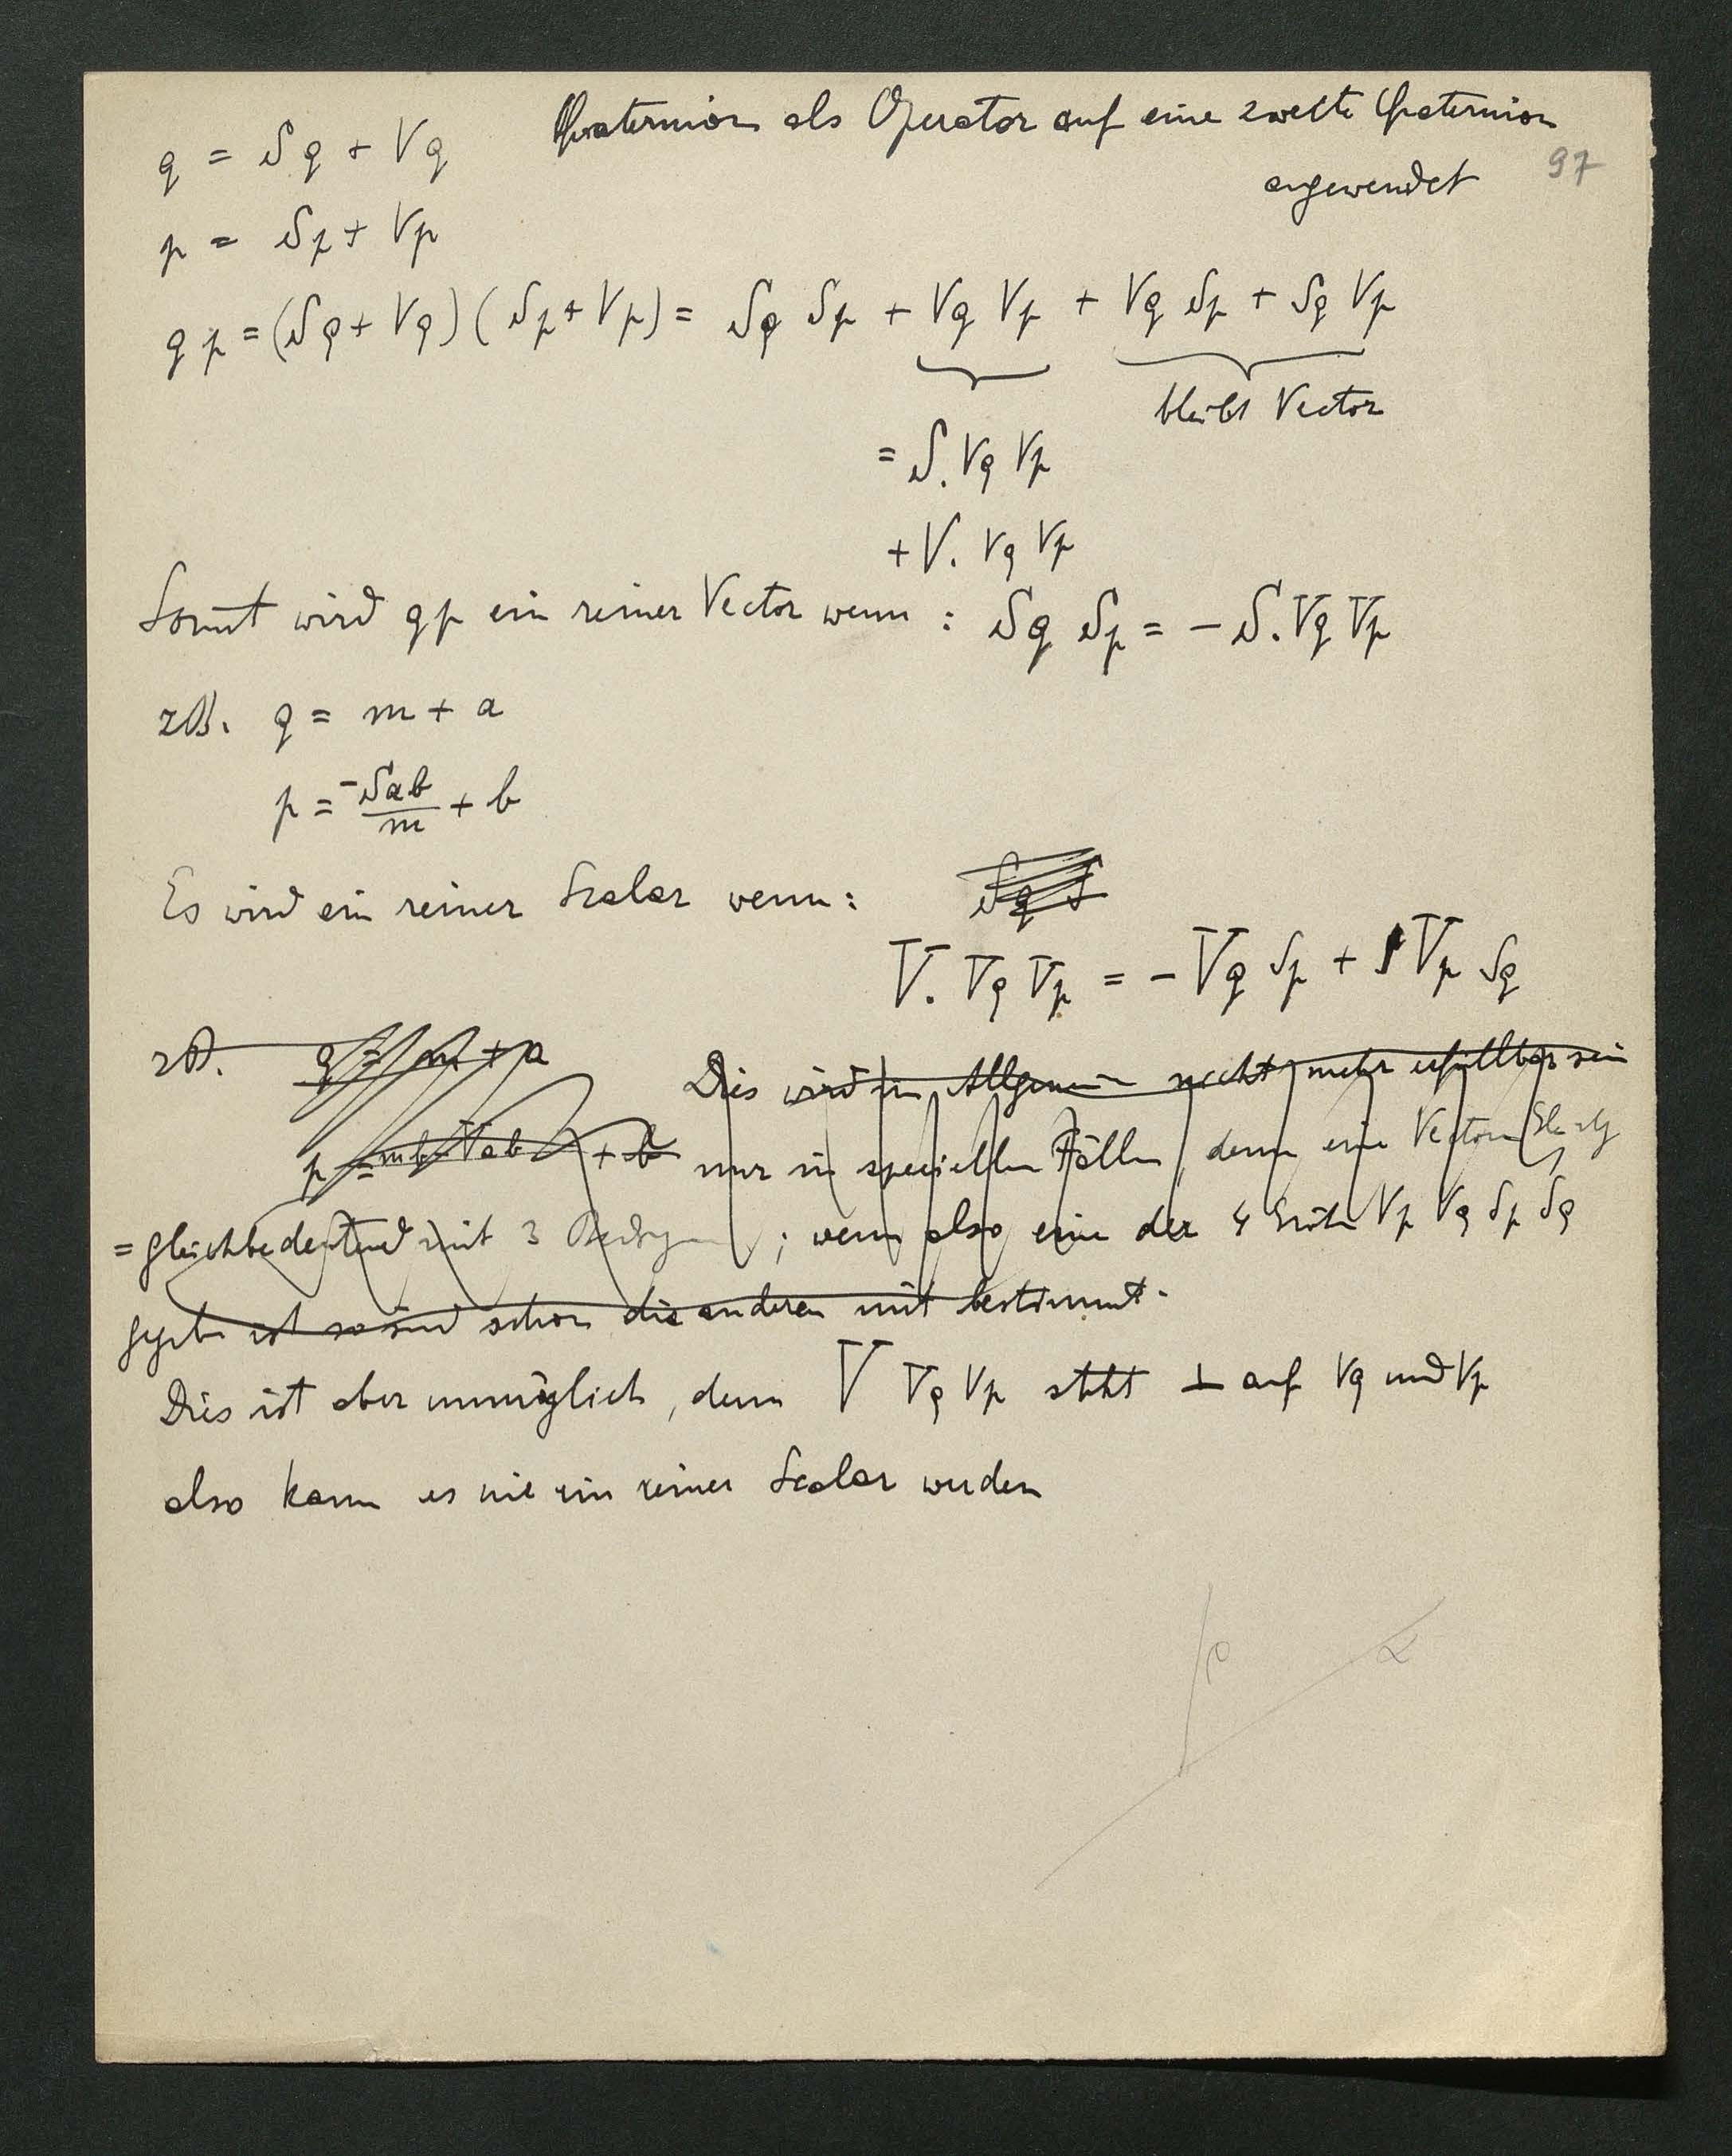 Quaternion als Operator auf eine zweite Quaternion
angewendet
97
q = Sq + Vq
p = Sp + Vp
qp = (Sq + Vq)(Sp + Vp) = Sq Sp + Vq Vp + Vq Sp + Sq Vp
bleibt Vector
= S. Vq Vp
+ V. Vq Vp
Somit wird qp ein reiner Vector wenn : Sq Sp = - S. Vq Vp
zB. q = m + a
p = -Sab/m + b
Es wird ein reiner Scalar wenn : Sq S
V. Vq Vp = - Vq Sp + Vp Sq
zB. q = m + a
Dies wird im Allgemein nicht mehr erfüllbar sein
p = + b nur in speciellen Fällen, denn eine Vectoren
= gleichbedeutend mit 3 ; wenn also eine der 4 Vp Vq Sp Sq
gegeben ist so sind schon die anderen mit bestimmt.
Dies ist aber unmöglich, denn V Vq Vp steht ⊥ auf Vq und Vp
also kann es nie ein reiner Scalar werden
α